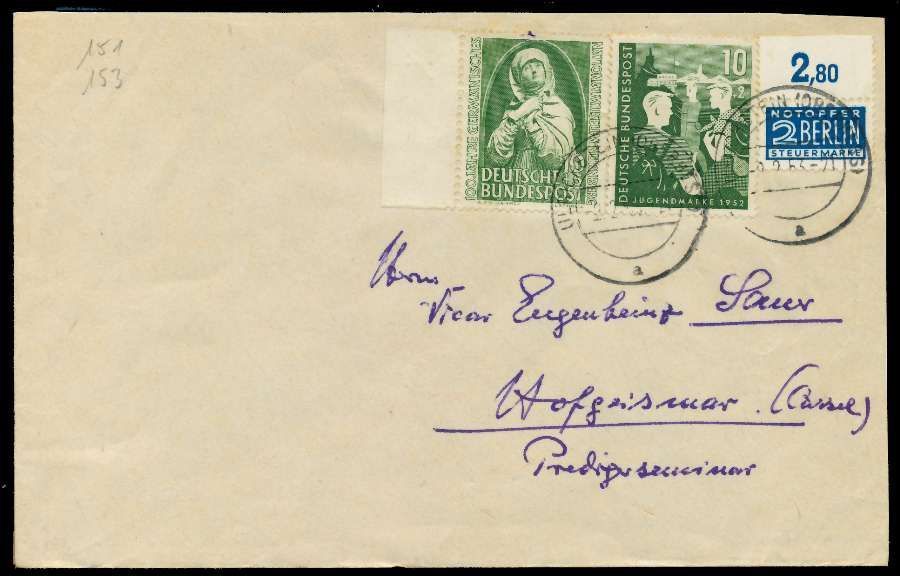 151
153
100 JAHRE GERMANISCHES
NATIONALMUSEUM
DEUTSCHE
BUNDESPOST
DEUTSCHE BUNDESPOST
10
+2
JUGENDMARKE 1952
2,80
NOTOPFER
2 BERLIN
STEUERMARKE
a
a
Herrn
Vicar Eugenheinz Saur
Hofgeismar. (Cassel)
Predigerseminar